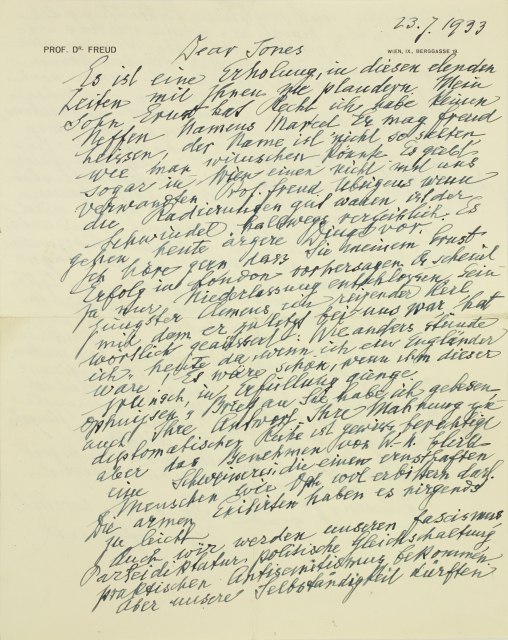 23.7.1933
PROF. DR. FREUD
WIEN, IX., BERGGASSE 19.
Dear Jones
Es ist eine Erholung, in diesen elenden
Zeiten mit Ihnen wie plaudern. Mein
Sohn Ernst hat Recht ich habe keinen
Neffen Namens Marcel Er mag Freud
heissen, der Name ist nicht so selten
wie man wünschen könnte Es giebt
sogar in Wien einen nicht mit uns
verwandten Prof. Freud Übrigens wenn
die Radierungen gut waren ist der
Schwindel halbwegs verzeihlich. Es
gehen heute ärgere Dinge vor.
Ich höre gern dass Sie meinem Ernst
Erfolg in London vorhersagen. Er scheint
ja zur Niederlassung entschlossen. Sein
jüngster Clemens ein reizender Kerl
mit dem er zuletzt bei uns war, hat
wörtlich geäussert: Wie anders stünde
ich heute da, wenn ich ein Engländer
wäre! Es wäre schön, wenn ihm dieser
Wunsch in Erfüllung gienge.
Ophuijsen's Brief an Sie habe ich gelesen,
auch Ihre Antwort. Ihre Mahnung zu
diplomatischer Ruhe ist gewiss berechtigt
aber das Benehmen von W-H. bleibt
eine Schweinerei die einen ernsthaften
Menschen wie Oph. wol erbittern darf.
Die armen Exilirten haben es nirgends
zu leicht
Auch wir werden unseren Fascismus
Parteidiktatur politische Gleichschaltung
praktischen Antisemitismus bekommen
aber unsere Selbständigkeit dürften